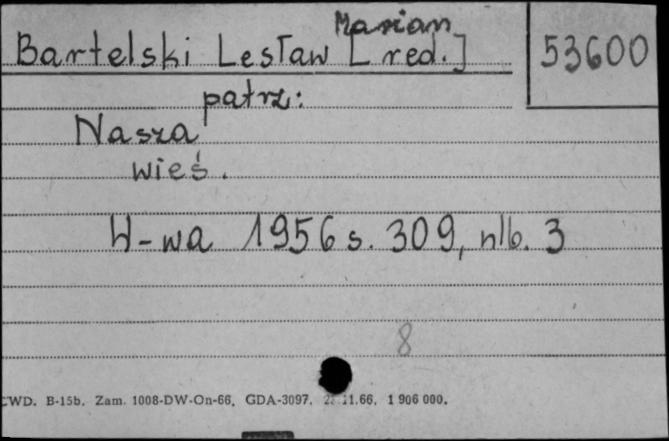 Marian
Bartelski Lesław [red.] 53600
patrz:
Nasza
wieś.
W-wa 1956 s. 309, nlb. 3
8
CWD. B-15b. Zam. 1008-DW-On-66. GDA-3097. 11.66. 1 906 000.